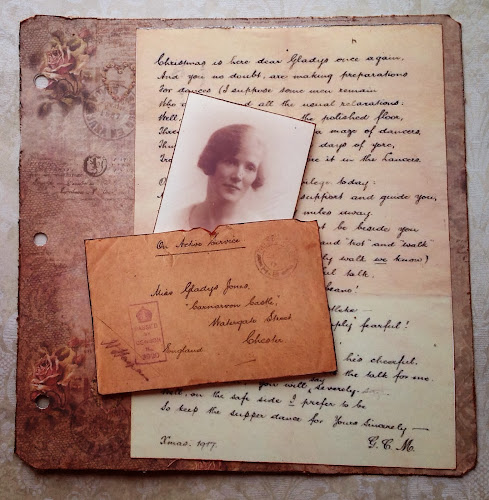 Christmas is here dear Gladys once again,
And you no doubt, are making preparations
For dances (I suppose some men remain
Who all the usual relaxations.
Well, the polished floor,
Thre a maze of dancers,
Thin days of yore,
Tro e it in the Lancers.
O ilege today:
support and guide you,
miles away.
t be beside you
and "hot" and "walk"
ly walk we know)
ful talk.
beano!
lake —
ply fearful!
his cheerful.
say the talk for me.
you will, severely.
Well, on the safe side I prefer to be
So keep the supper dance for Yours Sincerely —
Xmas. 1917.
G. C. M.
On Active Service
Miss Gladys Jones,
"Carnarvon Castle,"
Watergate Street,
Chester
England
PASSED
BY
CENSOR
No.